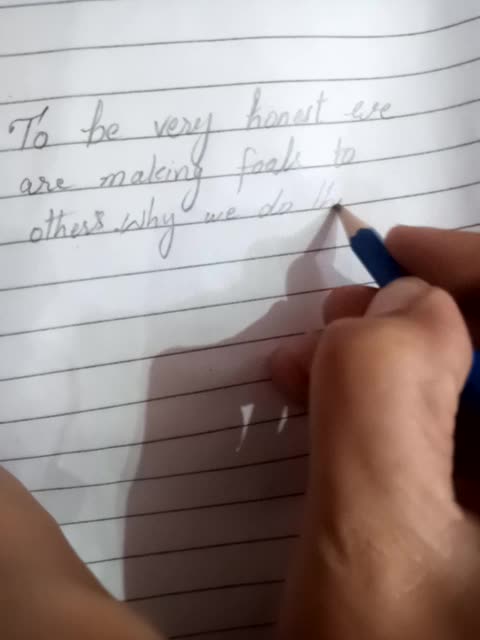 To be very honest we
are making fools to
others. Why we do th